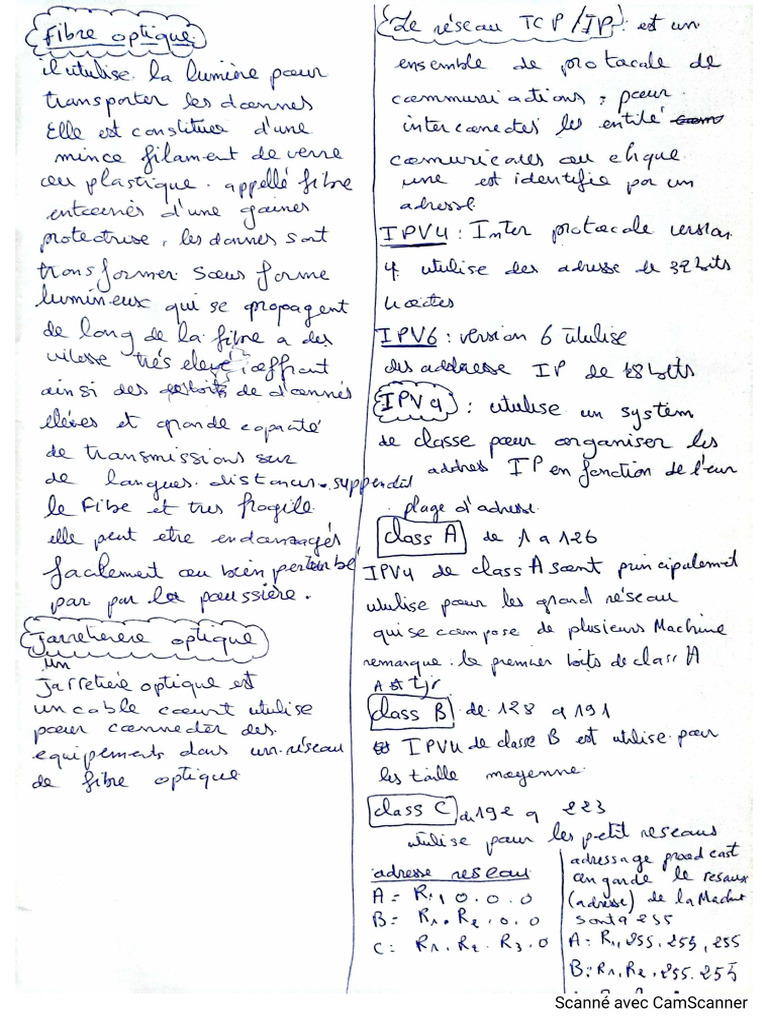 Fibre optique
il utulise la lumière pour
transporter les données
Elle est constituer d'une
mince filament de verre
ou plastique. appellé fibre
entourés d'une gaines
protectruse, les donnes sont
transformer sous forme
lumineux qui se propagent
de long de la fibre a des
vitesse très elevé, offrant
ainsi des de donnés
élèves et grande capacité
de transmissions sur
de langues distances.
le Fibe et tres fragile
elle peut etre endomagés
facilement ou bien perturbé
par par la poussière.
Jarretiere optique
un
Jarretiére optique est
un cable court utulise
pour connecter des
equipements dans un réseau
de fibre optique
Le réseau TCP/IP : est un
ensemble de protocale de
communications, pour
interconectes les entité
comunicales ou chque
une est identifie par un
adresse
IPV4 : Inter protocale version
4 utulise des adresse de 32 bits
4 octes
IPV6 : version 6 utulise
des addresse IP de 128 bits
IPV4 : utulise un systèm
de classe pour organiser les
addres IP en fonction de l'eur
plage d'adresse
class A de 1 a 126
IPV4 de class A sont principalemet
utulise pour les grand réseau
qui se compose de plusieurs Machine
remarque : le premier boits de class A
tjr
class B de 128 a 191
IPV4 de classe B est utulise pour
les taille moyenne
class C de 192 a 223
utulise pour les petit reseaus
adresse reseau
A = R1, 0. 0. 0
B = R1. R2. 0. 0
C : R1. R2. R3. 0
adressage broadcast
on garde le resaux
(adresse) de la Machine
sont a 255
A : R1, 255, 255, 255
B : R1, R2, 255. 255
Scanné avec CamScanner